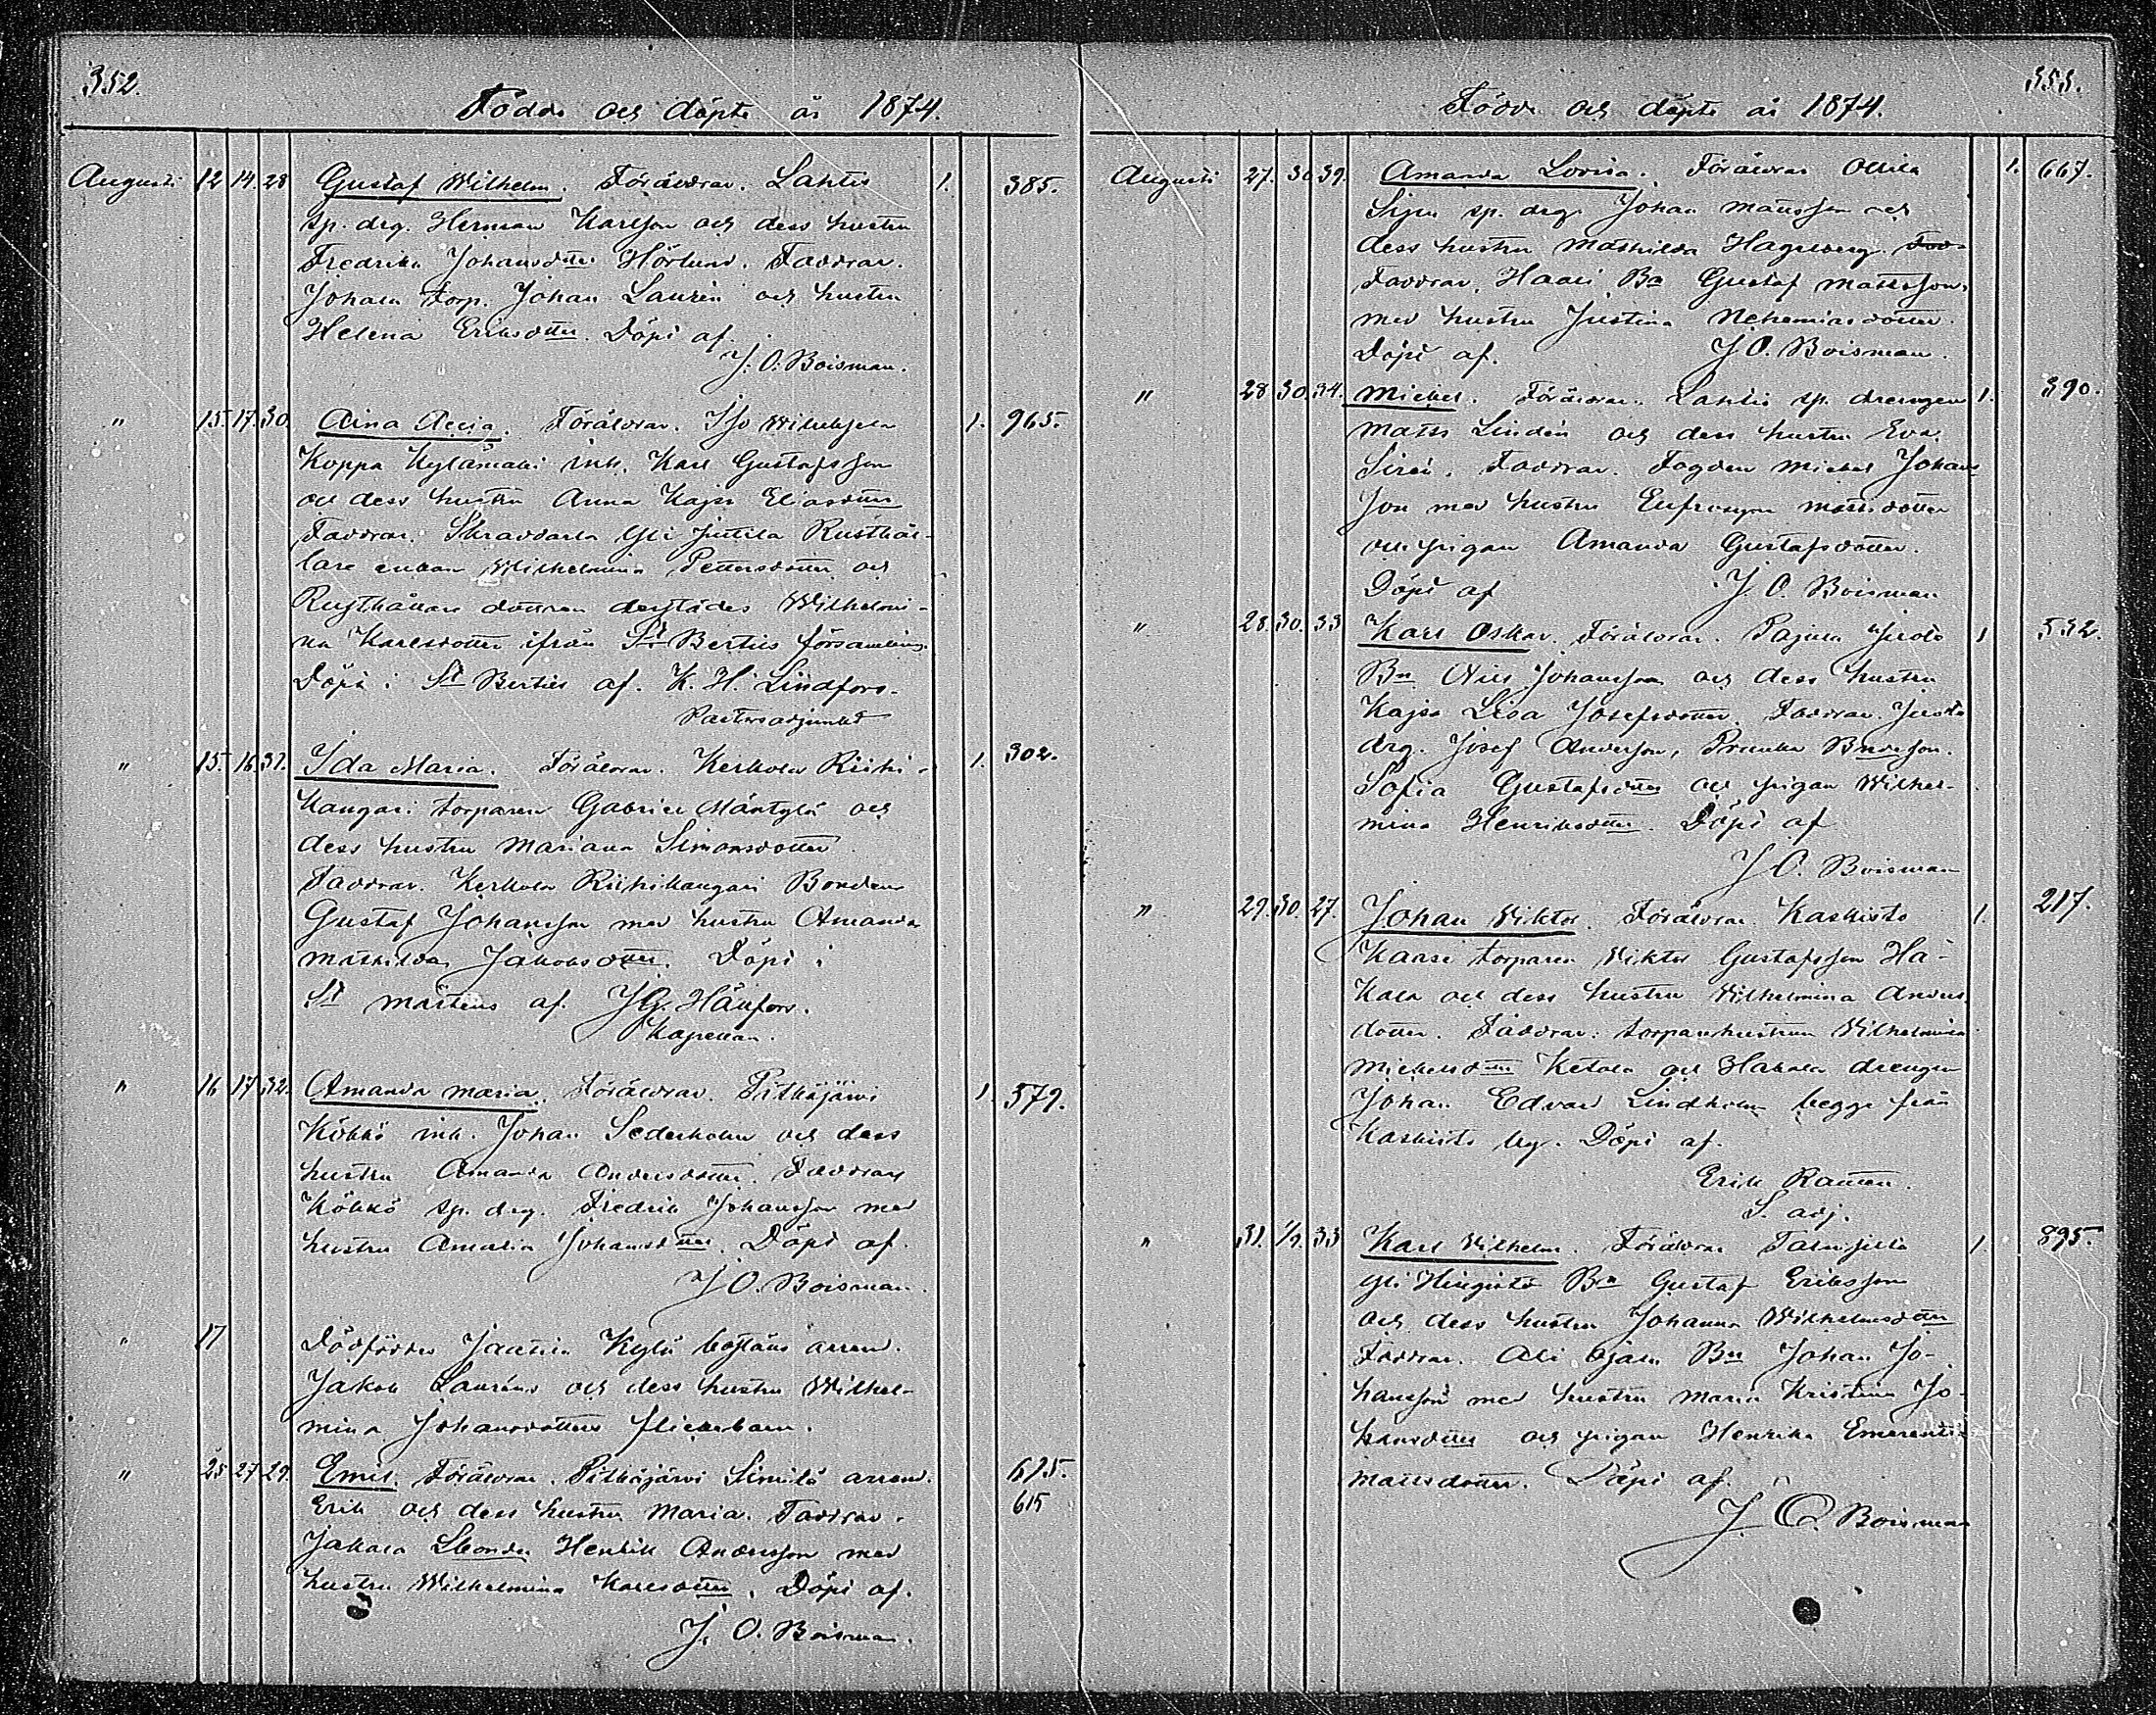 352.
Födde och döpte år 1874.
Augusti 12 14. 28 Gustaf Wilhelm. Föräldrar. Lahtis 1. 385.
sp. drg. Herman Karlsson och dess hustru
Fredrika Johansdtter Hörlund. Faddrar.
torp. Johan Laurén och hustru
Helena Eriksdtter. Döpt af.
J. O. Boisman.
" 15. 17. 30. Aina Föräldrar. 1. 965.
Koppa Kylämäki inh. Karl Gustafsson
och dess hustru Anna Kajsa Eliasdtter
Faddrar. Yli Juttila Rusthål-
lare enkan Wilhelmina Pettersdotter och
Rusthållare dottren derstädes Wilhelmi-
na Karlsdotter ifrån St Bertils församling.
Döpt i St Bertils af. K. H. Lindfors.
Pastorsadjunkt
" 15. 16. 37. Ida Maria. Föräldrar. Kerkola Riihi- 1. 302.
kangari torparen Gabriel Mäntylä och
dess hustru Mariana Simonsdotter.
Faddrar. Kerkola Riihikangari Bonden
Gustaf Johansson med hustru Amanda
Mathilda Jakobsdtter. Döpt i
St Mårtens af. J G. Hänfors.
Kapellan.
" 16 17 32. Amanda Maria. Föräldrar. Pitkäjärvi 1. 579.
Kökkö inh. Johan Sederholm och dess
hustru Amanda Andersdotter. Faddrar
Kökkö sp. drg. Fredrik Johansson med
hustru Amalia Johansdtter. Döpt af.
J O. Boisman.
" 17 Dödföddes Kylä arrend.
Jakob Lauréns och dess hustru Wilhel-
mina Johansdotters flickebarn.
" 25 27 29. Emil. Föräldrar. Pitkäjärvi Simila arrend. 675.
Erik och dess hustru Maria. Faddrar. 615
Jakala Henrik Andersson med
hustru Wilhelmina Karlsdtter. Döpt af.
J. O. Boisman.
353.
Födde och döpte år 1874.
Augusti 27. 30 39. Amanda Lovisa. Föräldrar Ollila 1. 667.
sp. drg. Johan Mattsson och
dess hustru Mathilda Hagelberg.
Faddrar. Bn Gustaf Mattsson
med hustru Justina Nehemiasdotter.
Döpt af. J O. Boisman.
" 28 30. 34. Mickel. Föräldrar. Lahtis sp. drengen 1. 390.
Matts Lindén och dess hustru Eva
Sirén. Faddrar. Fogden Mickel Johans
son med hustru Eufrosyne Mattsdotter
och pigan Amanda Gustafsdotter.
Döpt af J O. Boisman
" 28. 30. 33 Karl Oskar. Föräldrar. Pajula 1 532.
Bn Nils Johansson och dess hustru
Kajsa Lisa Josefsdotter. Faddrar.
drg. Josef Andersson,
Sofia Gustafsdtter och pigan Wilhel-
mina Henriksdtter. Döpt af
J O. Boisman
" 29. 30. 27. Johan Viktor. Föräldrar Kaskisto 1. 217.
Kaasi torparen Viktor Gustafsson Ha-
kala och dess hustru Wilhelmina Anders
dotter. Faddrar: torparehustrun Wilhelmina
Mickelsdtter Ketola och Hakala drengen
Johan Edvard Lindholm begge från
Kaskisto by. Döpt af.
Erik
S. adj.
" 31. 1/9. 33 Karl Wilhelm. Föräldrar 1. 895.
Yli Bn Gustaf Eriksson
och dess hustru Johanna Wilhelmsdtter
Faddrar. Ali Ojala Bn Johan Jo-
hansson med hustru Maria Kristina Jo-
hansdtter och pigan Henrika Emerentia
Mattsdotter. Döpt af.
J. O. Boisman